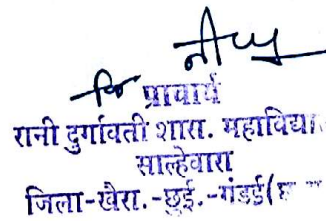 प्राचार्य
रानी दुर्गावती शास. महाविद्या
साल्हेवारा
जिला-खैरा.-छुई.-गंडई(छ